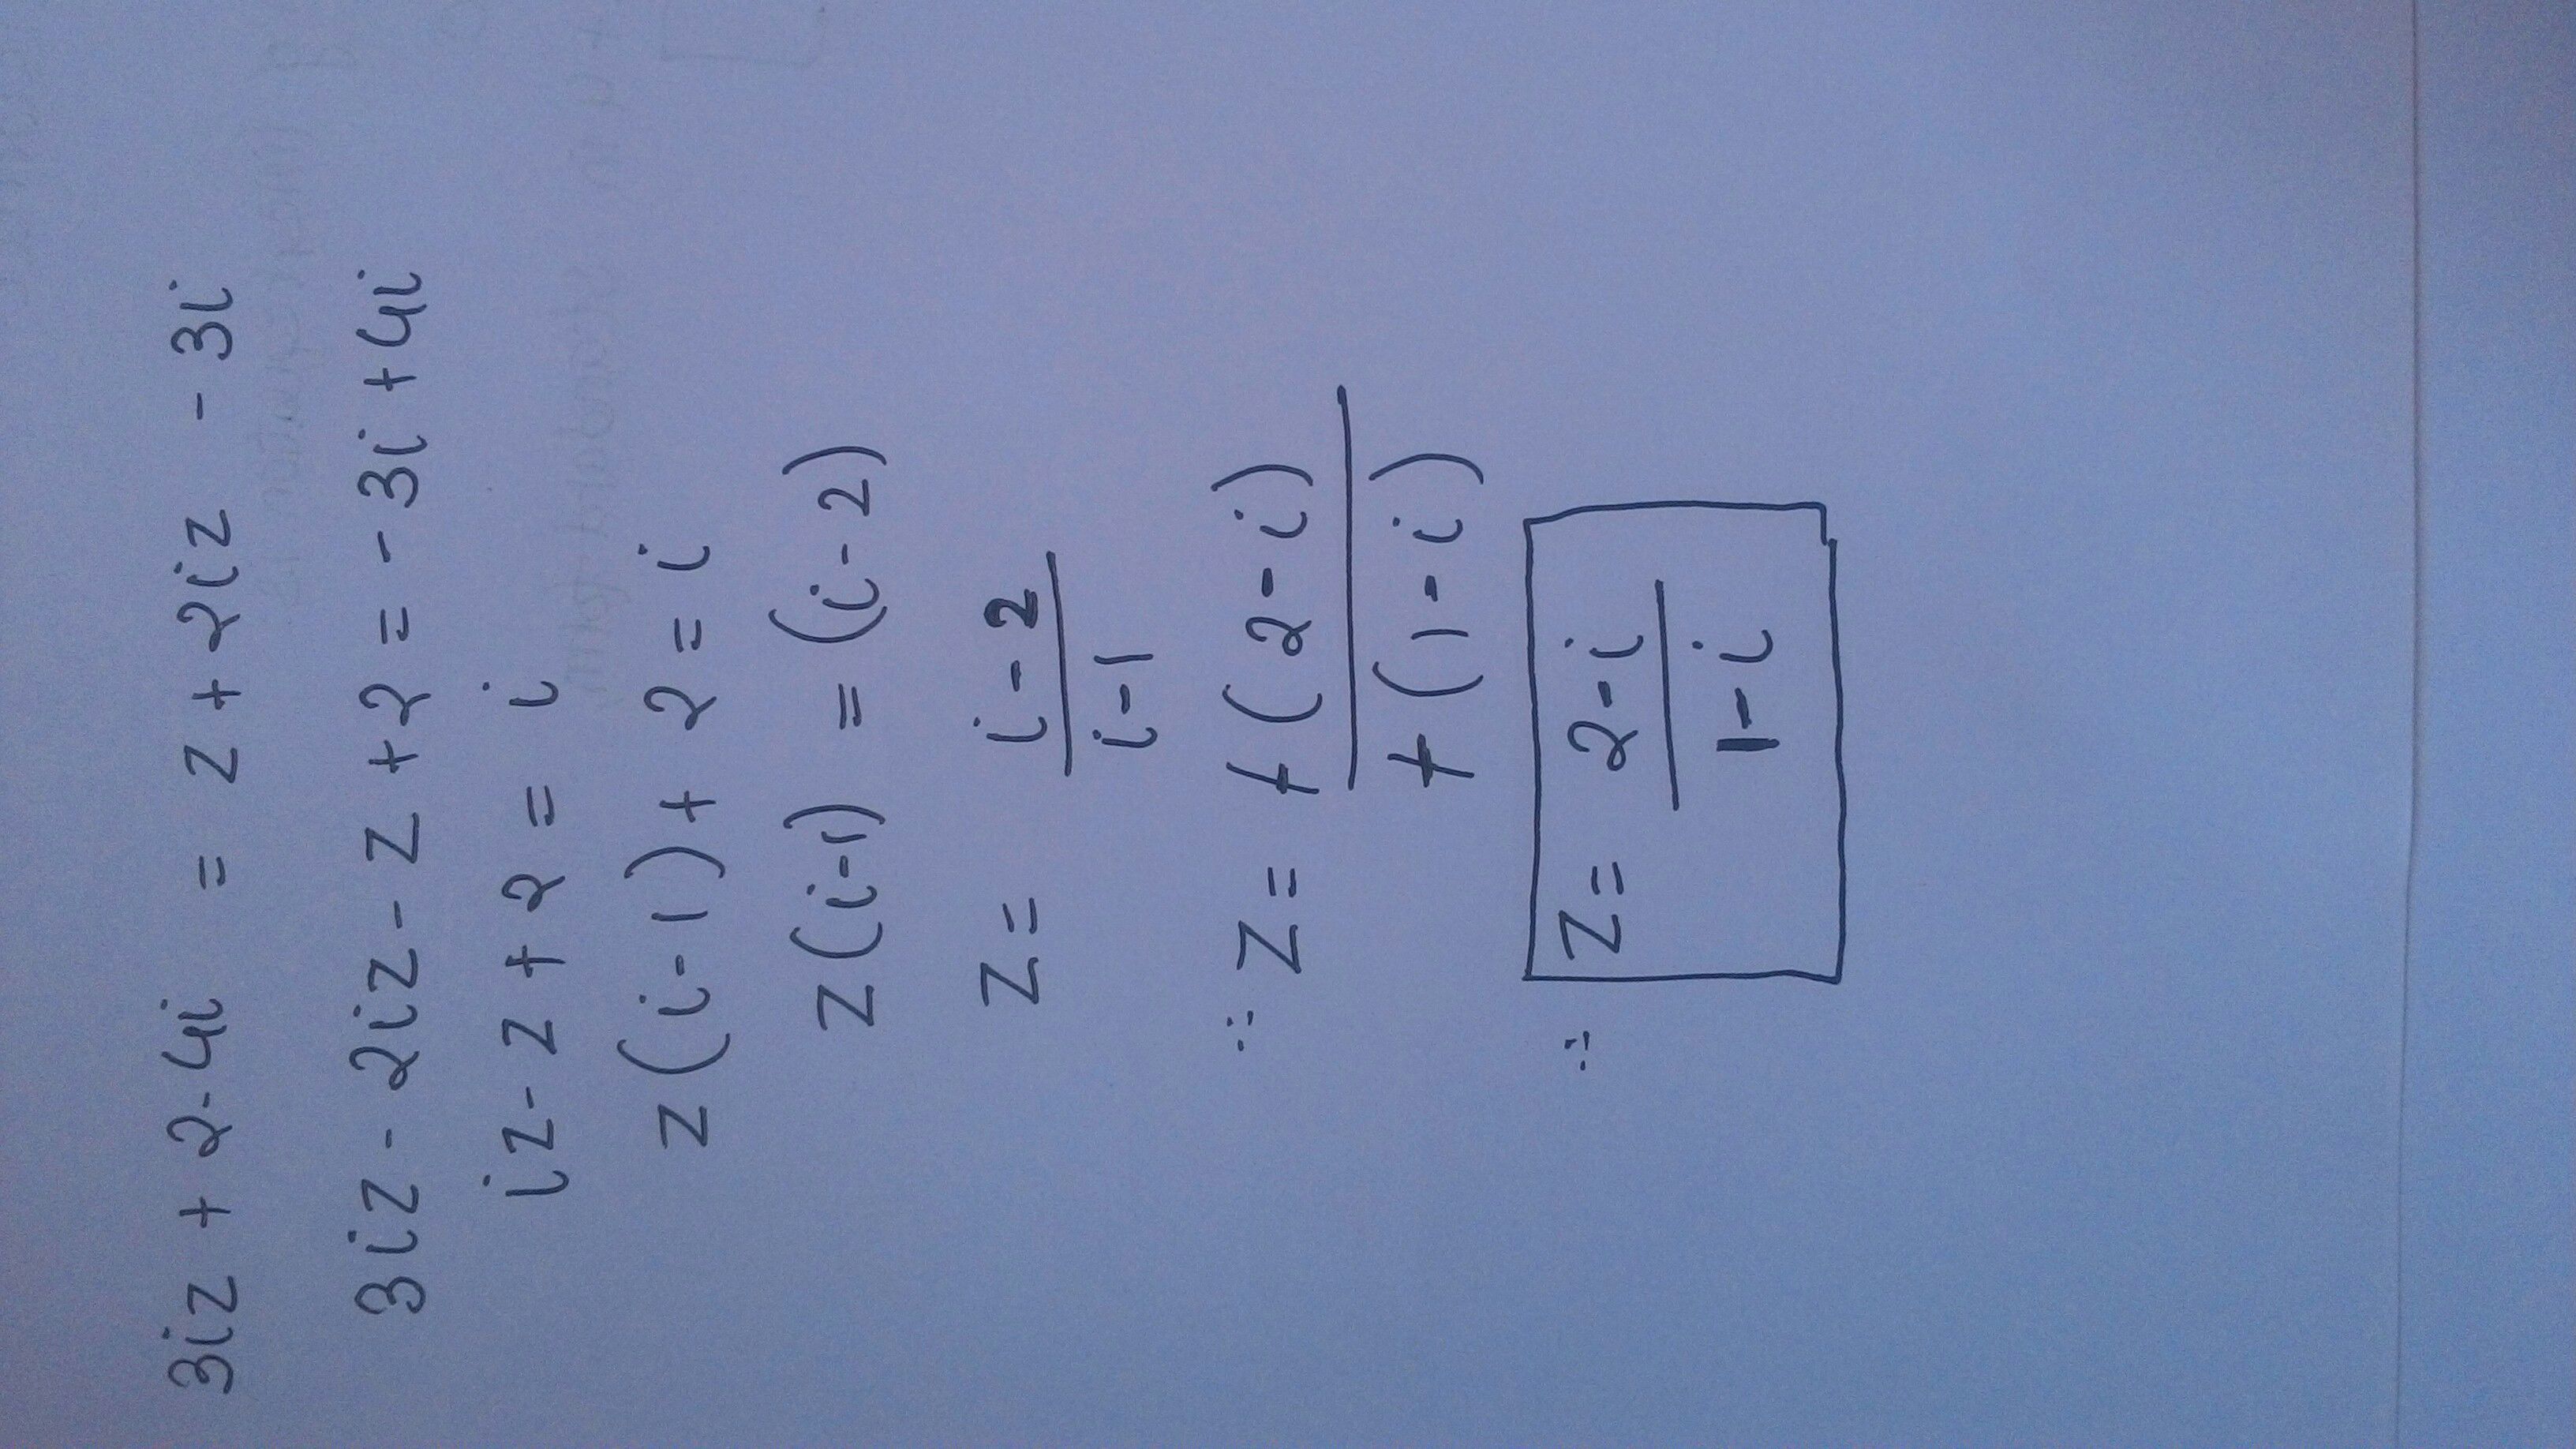 3iz + 2-4i = z + 2iz - 3i
3iz - 2iz - z + 2 = -3i + 4i
iz - z + 2 = i
z(i-1) + 2 = i
z(i-1) = (i-2)
z = i-2
i-1
∴ z = +(2-i)
+(1-i)
∴ z = 2-i
1-i